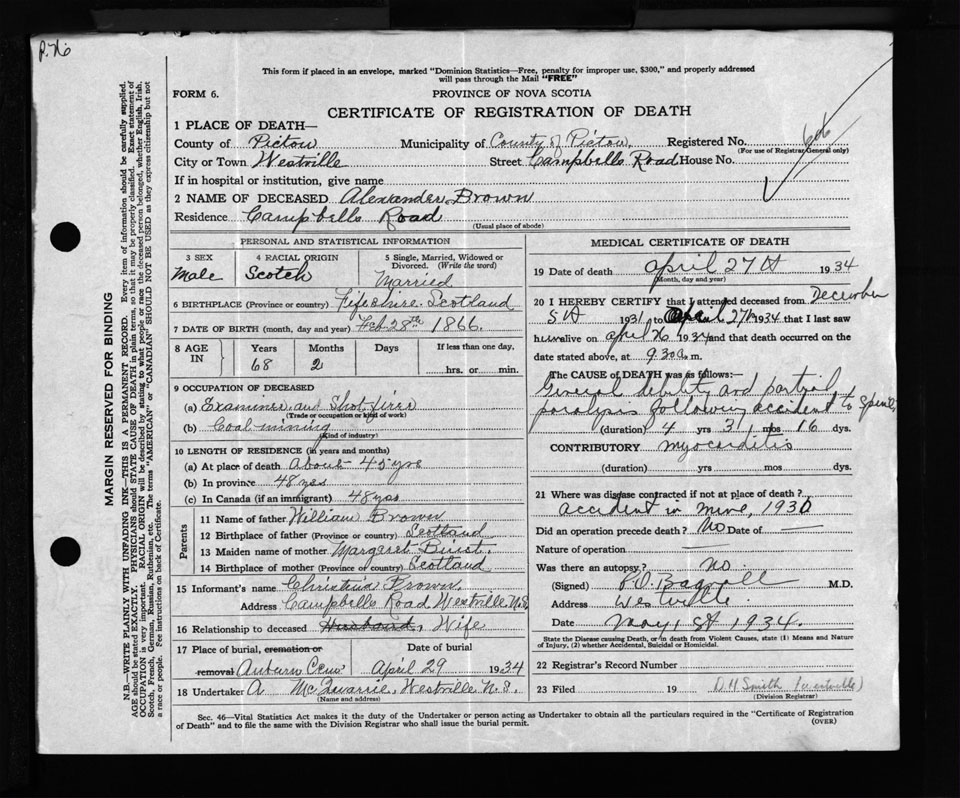 P. 76
This form if placed in an envelope, marked "Dominion Statistics—Free, penalty for improper use, $300," and properly addressed
will pass through the Mail "FREE"
FORM 6. PROVINCE OF NOVA SCOTIA
CERTIFICATE OF REGISTRATION OF DEATH
1 PLACE OF DEATH—
County of Pictou Municipality of County of Pictou Registered No. 606
(For use of Registrar General only)
City or Town Westville Street Campbells Road House No.
If in hospital or institution, give name
2 NAME OF DECEASED Alexander Brown
Residence Campbells Road
(Usual place of abode)
PERSONAL AND STATISTICAL INFORMATION
3 SEX 4 RACIAL ORIGIN 5 Single, Married, Widowed or
Divorced. (Write the word)
Male Scotch Married
6 BIRTHPLACE (Province or country) Fifeshire. Scotland
7 DATE OF BIRTH (month, day and year) Feb 28th 1866.
8 AGE IN Years Months Days If less than one day,
68 2 hrs. or min.
9 OCCUPATION OF DECEASED
(a) Examiner and Shot firer
(Trade or occupation or kind of work)
(b) Coal mining
(Kind of industry)
10 LENGTH OF RESIDENCE (in years and months)
(a) At place of death About 45 yrs
(b) In province 48 yrs
(c) In Canada (if an immigrant) 48 yrs
Parents
11 Name of father William Brown
12 Birthplace of father (Province or country) Scotland
13 Maiden name of mother Margaret Buist.
14 Birthplace of mother (Province or country) Scotland
15 Informant's name Christina Brown.
Address Campbells Road Westville N.S
16 Relationship to deceased Husband, Wife
17 Place of burial, cremation or removal Date of burial
Auburn Cem April 29 1934
18 Undertaker A McQuarrie, Westville N.S.
(Name and address)
MEDICAL CERTIFICATE OF DEATH
19 Date of death April 27th 1934
(Month, day and year)
20 I HEREBY CERTIFY that I attended deceased from December
5th 1931 to April 27th 1934 that I last saw
him alive on April 26 1934 and that death occurred on the
date stated above, at 9.30 a. m.
The CAUSE of DEATH was as follows:—
General debility and partial
paralysis following accident to Spine.
(duration) 4 yrs 3 mos 16 dys.
CONTRIBUTORY myocarditis
(duration) yrs mos dys.
21 Where was disease contracted if not at place of death?
accident in mine, 1930
Did an operation precede death? No Date of —
Nature of operation —
Was there an autopsy? No.
(Signed) M.D.
Address Westville.
Date May 1st 1934.
State the Disease causing Death, or in death from Violent Causes, state (1) Means and Nature
of Injury, (2) whether Accidental, Suicidal or Homicidal.
22 Registrar's Record Number
23 Filed 19 D H Smith (Westville)
(Division Registrar)
Sec. 46—Vital Statistics Act makes it the duty of the Undertaker or person acting as Undertaker to obtain all the particulars required in the "Certificate of Registration
of Death" and to file the same with the Division Registrar who shall issue the burial permit. (OVER)
MARGIN RESERVED FOR BINDING
N.B.—WRITE PLAINLY WITH UNFADING INK—THIS IS A PERMANENT RECORD. Every item of information should be carefully supplied.
AGE should be stated EXACTLY. PHYSICIANS should STATE CAUSE OF DEATH in plain terms, so that it may be properly classified. Exact statement of
OCCUPATION is very important. RACIAL ORIGIN will be described by stating to what people or race the deceased person belonged, whether English, Irish,
Scotch, French, German, Russian, Ruthenian, etc. The terms "AMERICAN" or "CANADIAN" SHOULD NOT BE USED as they express citizenship but not
a race or people. Fee instructions on back of Certificate.